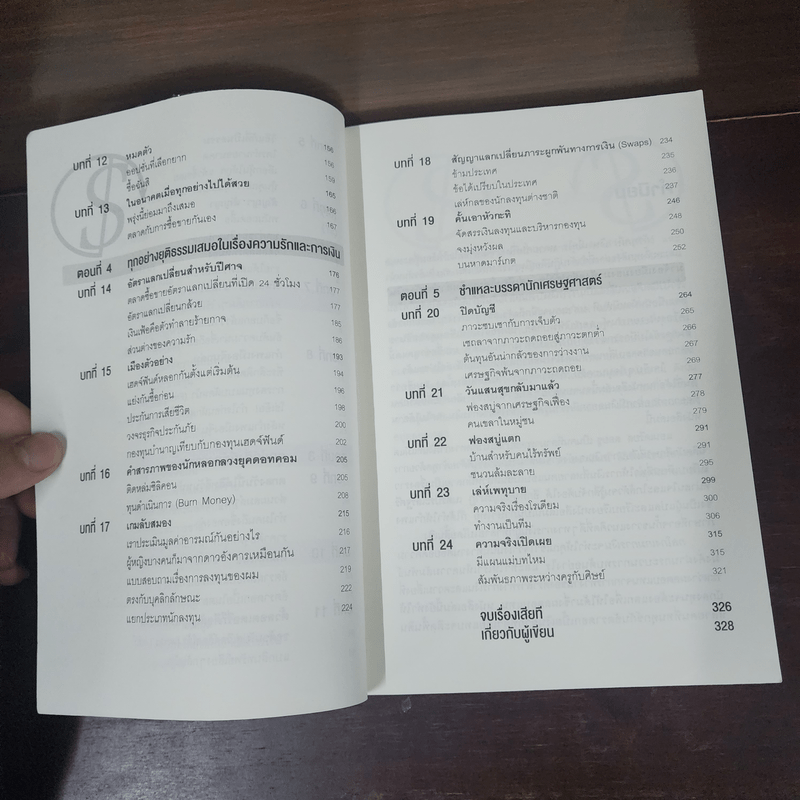 บทที่ 12 หมดตัว 156
ออปชันที่เลือกยาก 156
ซื้อฉันสิ 159
บทที่ 13 ในอนาคตเมื่อทุกอย่างไปได้สวย 165
พรุ่งนี้ย่อมมาถึงเสมอ 165
ตลาดกับการซื้อขายกันเอง 167
ตอนที่ 4 ทุกอย่างยุติธรรมเสมอในเรื่องความรักและการเงิน
บทที่ 14 อัตราแลกเปลี่ยนสำหรับปีศาจ 176
ตลาดซื้อขายอัตราแลกเปลี่ยนที่เปิด 24 ชั่วโมง 177
อัตราแลกเปลี่ยนกล้วย 177
เงินเฟ้อคือตัวทำลายร้ายกาจ 185
ส่วนต่างของความรัก 186
บทที่ 15 เมืองตัวอย่าง 193
เฮดจ์ฟันด์หลอกกันตั้งแต่เริ่มต้น 194
แย่งกันซื้อก่อน 196
ประกันการเสียชีวิต 198
วงจรธุรกิจประกันภัย 200
กองทุนบำนาญเทียบกับกองทุนเฮดจ์ฟันด์ 202
บทที่ 16 คำสารภาพของนักหลอกลวงยุคดอทคอม 205
ติดหล่มซิลิคอน 205
ทุนดำเนินการ (Burn Money) 208
บทที่ 17 เกมลับสมอง 215
เราประเมินมูลค่าอารมณ์กันอย่างไร 216
ผู้หญิงบางคนก็มาจากดาวอังคารเหมือนกัน 217
แบบสอบถามเรื่องการลงทุนของผม 221
ตรงกับบุคลิกลักษณะ 222
แยกประเภทนักลงทุน 224
บทที่ 18 สัญญาแลกเปลี่ยนภาระผูกพันทางการเงิน (Swaps) 234
ข้ามประเทศ 235
ข้อได้เปรียบในประเทศ 235
เล่ห์กลของนักลงทุนต่างชาติ 237
บทที่ 19 คั้นเอาหัวกะทิ 246
จัดสรรเงินลงทุนและบริหารกองทุน 248
จงมุ่งหวังผล 250
บนหาดมาร์เกต 252
ตอนที่ 5 ชำแหละบรรดานักเศรษฐศาสตร์
บทที่ 20 ปิดบัญชี 264
ภาวะซบเซากับการเจ็บตัว 265
เซถลาจากภาวะถดถอยสู่ภาวะตกต่ำ 266
ต้นทุนอันน่ากลัวของการว่างงาน 267
เศรษฐกิจพ้นจากภาวะถดถอย 269
บทที่ 21 วันแสนสุขกลับมาแล้ว 277
ฟองสบู่จากเศรษฐกิจเฟื่อง 278
คนเขลาในหมู่ชน 279
บทที่ 22 ฟองสบู่แตก 291
บ้านสำหรับคนไร้ทรัพย์ 291
ชนวนล้มละลาย 295
บทที่ 23 เล่ห์เพทุบาย 299
ความจริงเรื่องโรเดียม 300
ทำงานเป็นทีม 306
บทที่ 24 ความจริงเปิดเผย 315
มีแผนแม่บทไหม 315
สัมพันธภาพระหว่างครูกับศิษย์ 321
จบเรื่องเสียที 326
เกี่ยวกับผู้เขียน 328